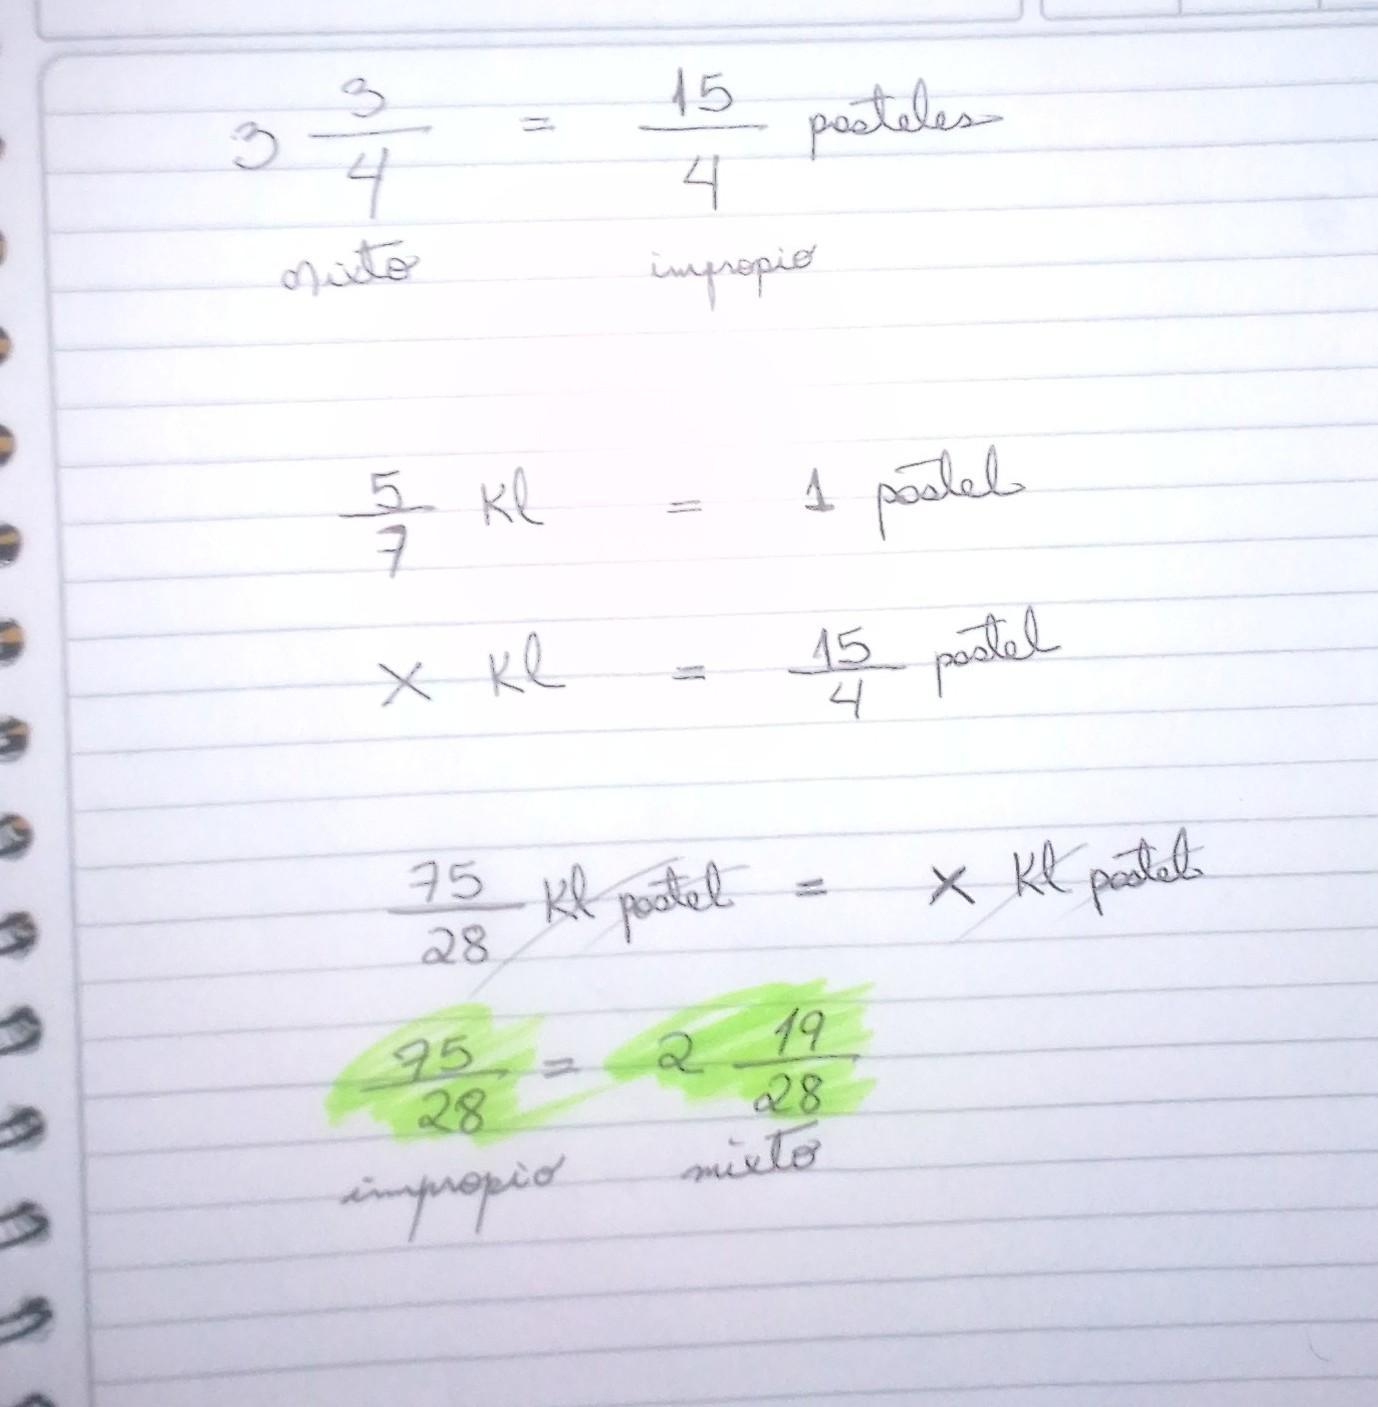 3 3/4 = 15/4 pasteles
mixto impropio
5/7 Kl = 1 pastel
x Kl = 15/4 pastel
75/28 Kl pastel = x Kl pastel
75/28 = 2 19/28
impropio mixto